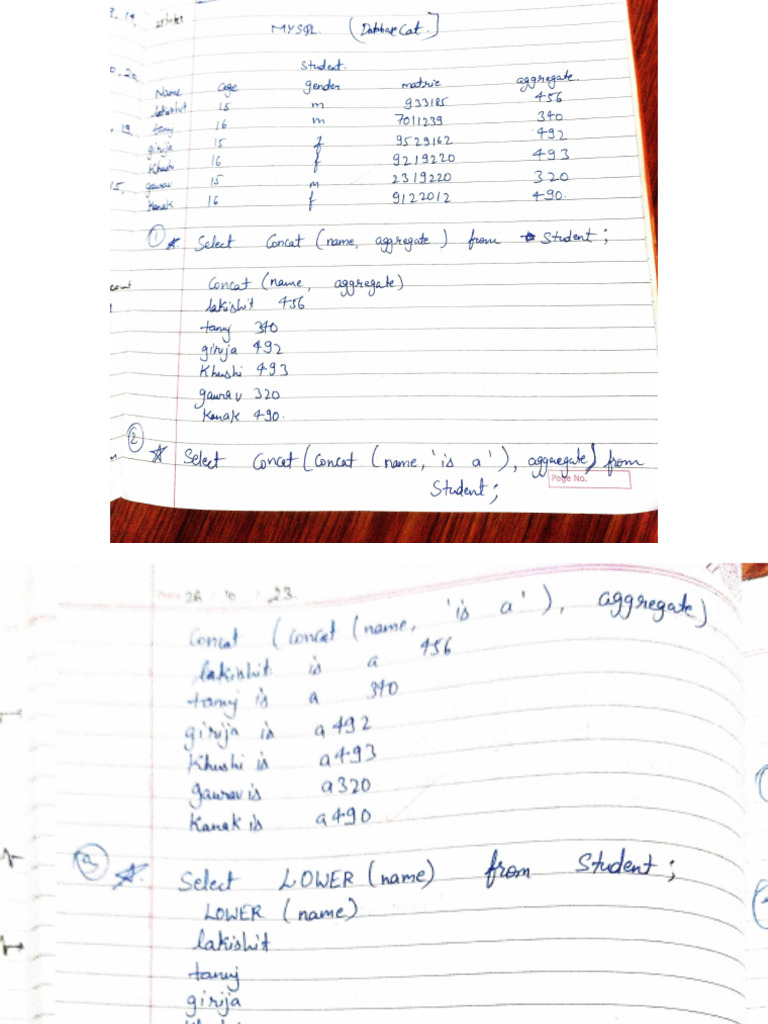 MYSQL. (Database Cat.]
Student.
Name age gender matric aggregate.
lakishit 15 m 933185 456
tanuj 16 m 7011239 340
girija 15 f 9529162 492
Khushi 16 f 9219220 493
gaurav 15 m 2319220 320
Kanak 16 f 9122012 490.
① Select Concat (name, aggregate) from Student;
Concat (name, aggregate)
lakishit 456
tanuj 340
girija 492
Khushi 493
gaurav 320
Kanak 490.
② Select Concat (Concat (name, 'is a'), aggregate) from
Student;
Page No.
23.
Concat (Concat (name, 'is a'), aggregate)
lakishit is a 456
tanuj is a 340
girija is a 492
Khushi is a 493
gaurav is a 320
Kanak is a 490
Select LOWER (name) from Student;
LOWER (name)
lakishit
tanuj
girija